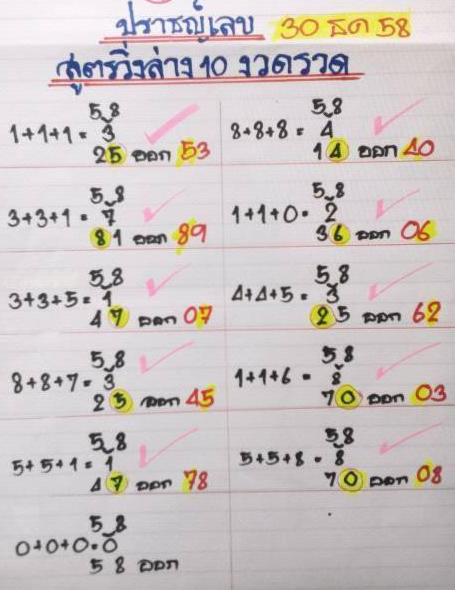 ปราชญ์เลข 30 ธค 58
สูตรวิ่งล่าง 10 งวดรวด
5 8
1+1+1 = 3
2 5 ออก 53
5 8
3+3+1 = 7
8 1 ออก 89
5 8
3+3+5 = 1
4 7 ออก 07
5 8
8+8+7 = 3
2 5 ออก 45
5 8
5+5+1 = 1
4 7 ออก 78
5 8
0+0+0 = 0
5 8 ออก
5 8
8+8+8 = 4
1 4 ออก 40
5 8
1+1+0 = 2
3 6 ออก 06
5 8
4+4+5 = 3
2 5 ออก 62
5 8
1+1+6 = 8
7 0 ออก 03
5 8
5+5+8 = 8
7 0 ออก 08